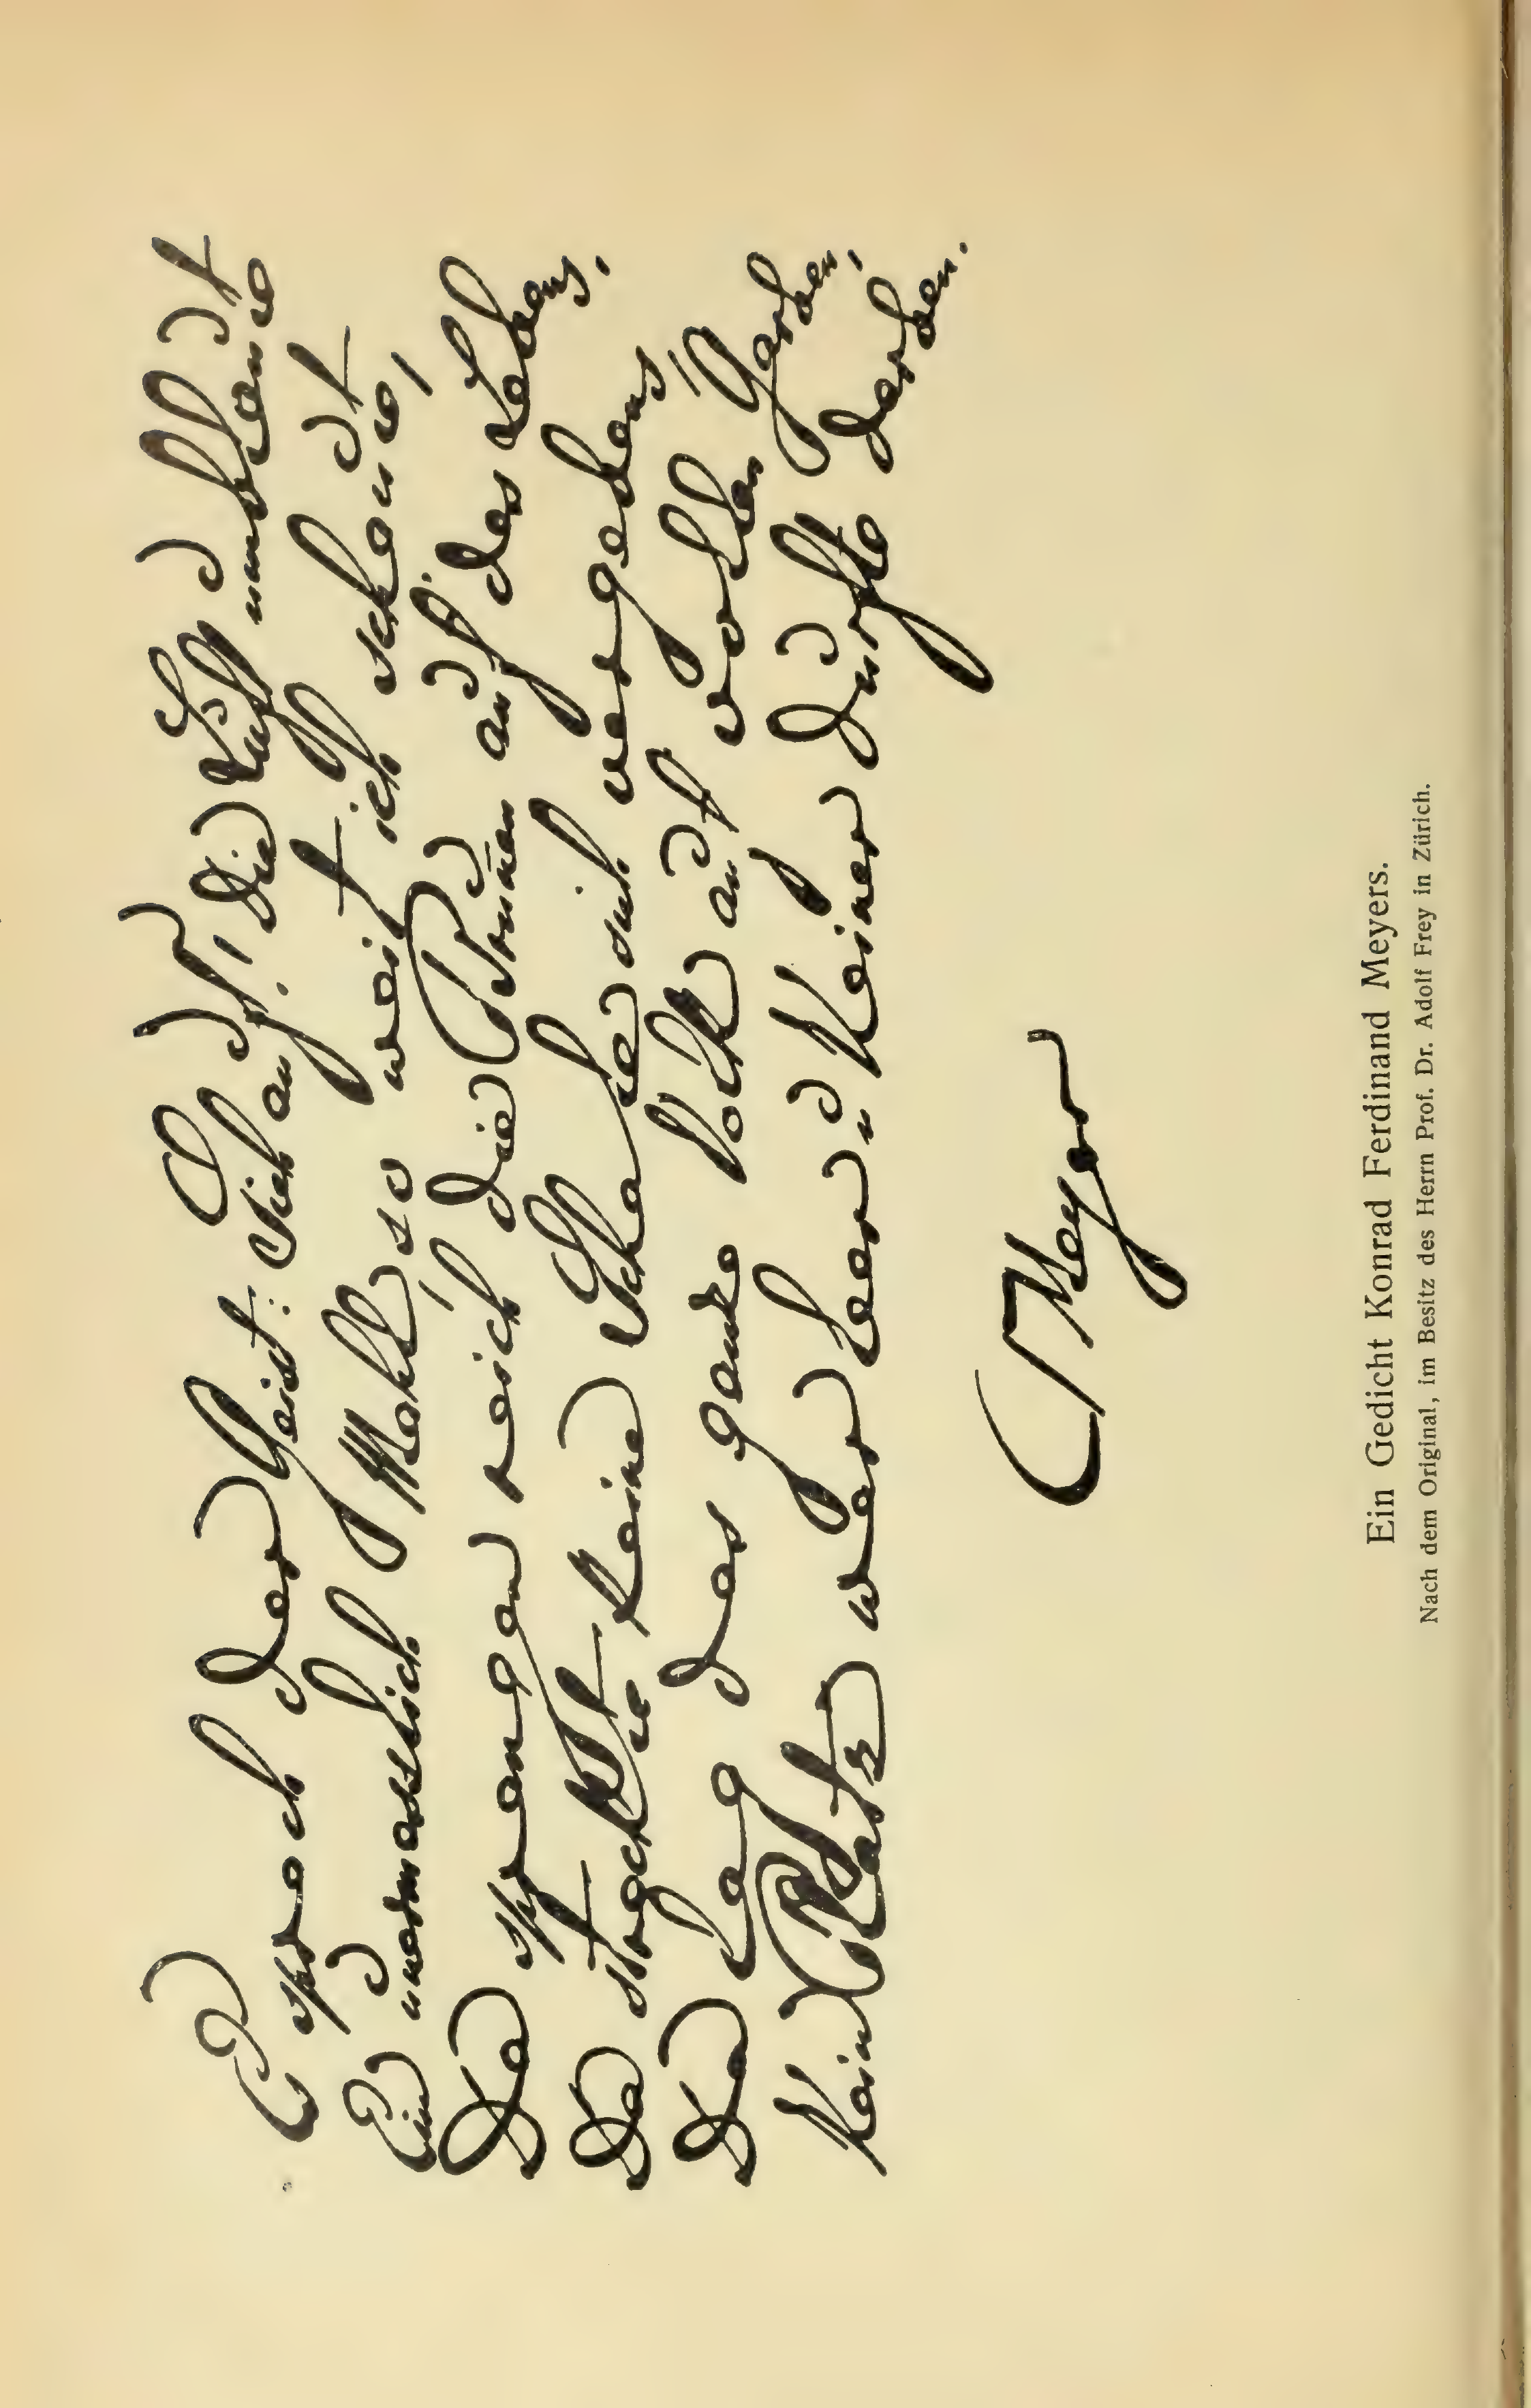 Es sprach der Geist: Sieh auf! Die Luft umblaute
Ein unermesslich Mahl, so weit ich schaute,
Da sprangen reich die Brun̄en auf des Lebens,
Da streckte keine Schale sich vergebens,
Da lag das ganze Volk auf vollen Garben,
Kein Platz war leer u Keiner durfte darben.
CFMeyer
Ein Gedicht Konrad Ferdinand Meyers.
Nach dem Original, im Besitz des Herrn Prof. Dr. Adolf Frey in Zürich.